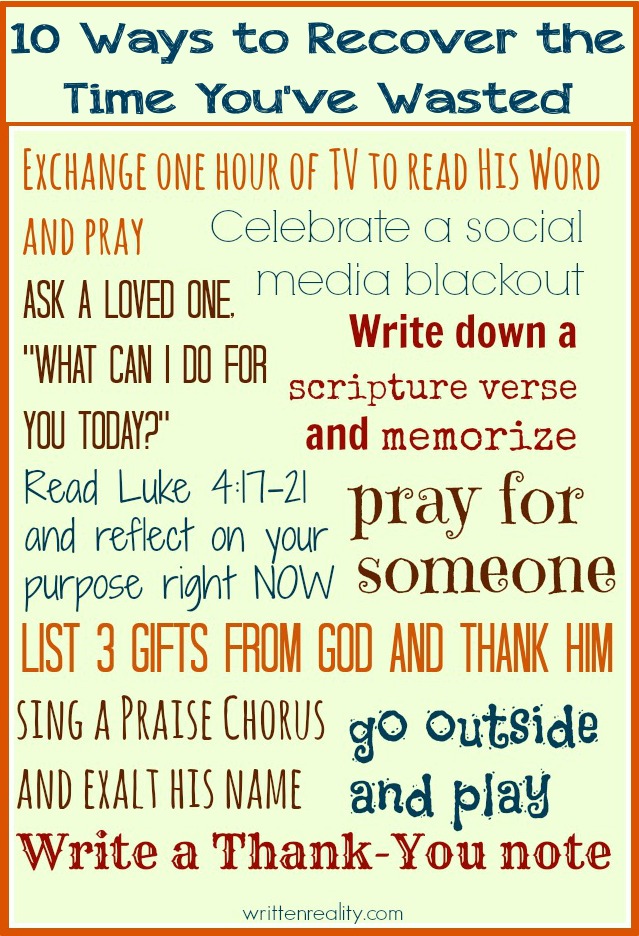 10 Ways to Recover the
Time You've Wasted
Exchange one hour of TV to read His Word
and pray
Celebrate a social
media blackout
ASK A LOVED ONE,
"WHAT CAN I DO FOR
YOU TODAY?"
Write down a
scripture verse
and memorize
Read Luke 4:17-21
and reflect on your
purpose right NOW
pray for
someone
LIST 3 GIFTS FROM GOD AND THANK HIM
sing a Praise Chorus
and exalt his name
go outside
and play
Write a Thank-You note
writtenreality.com